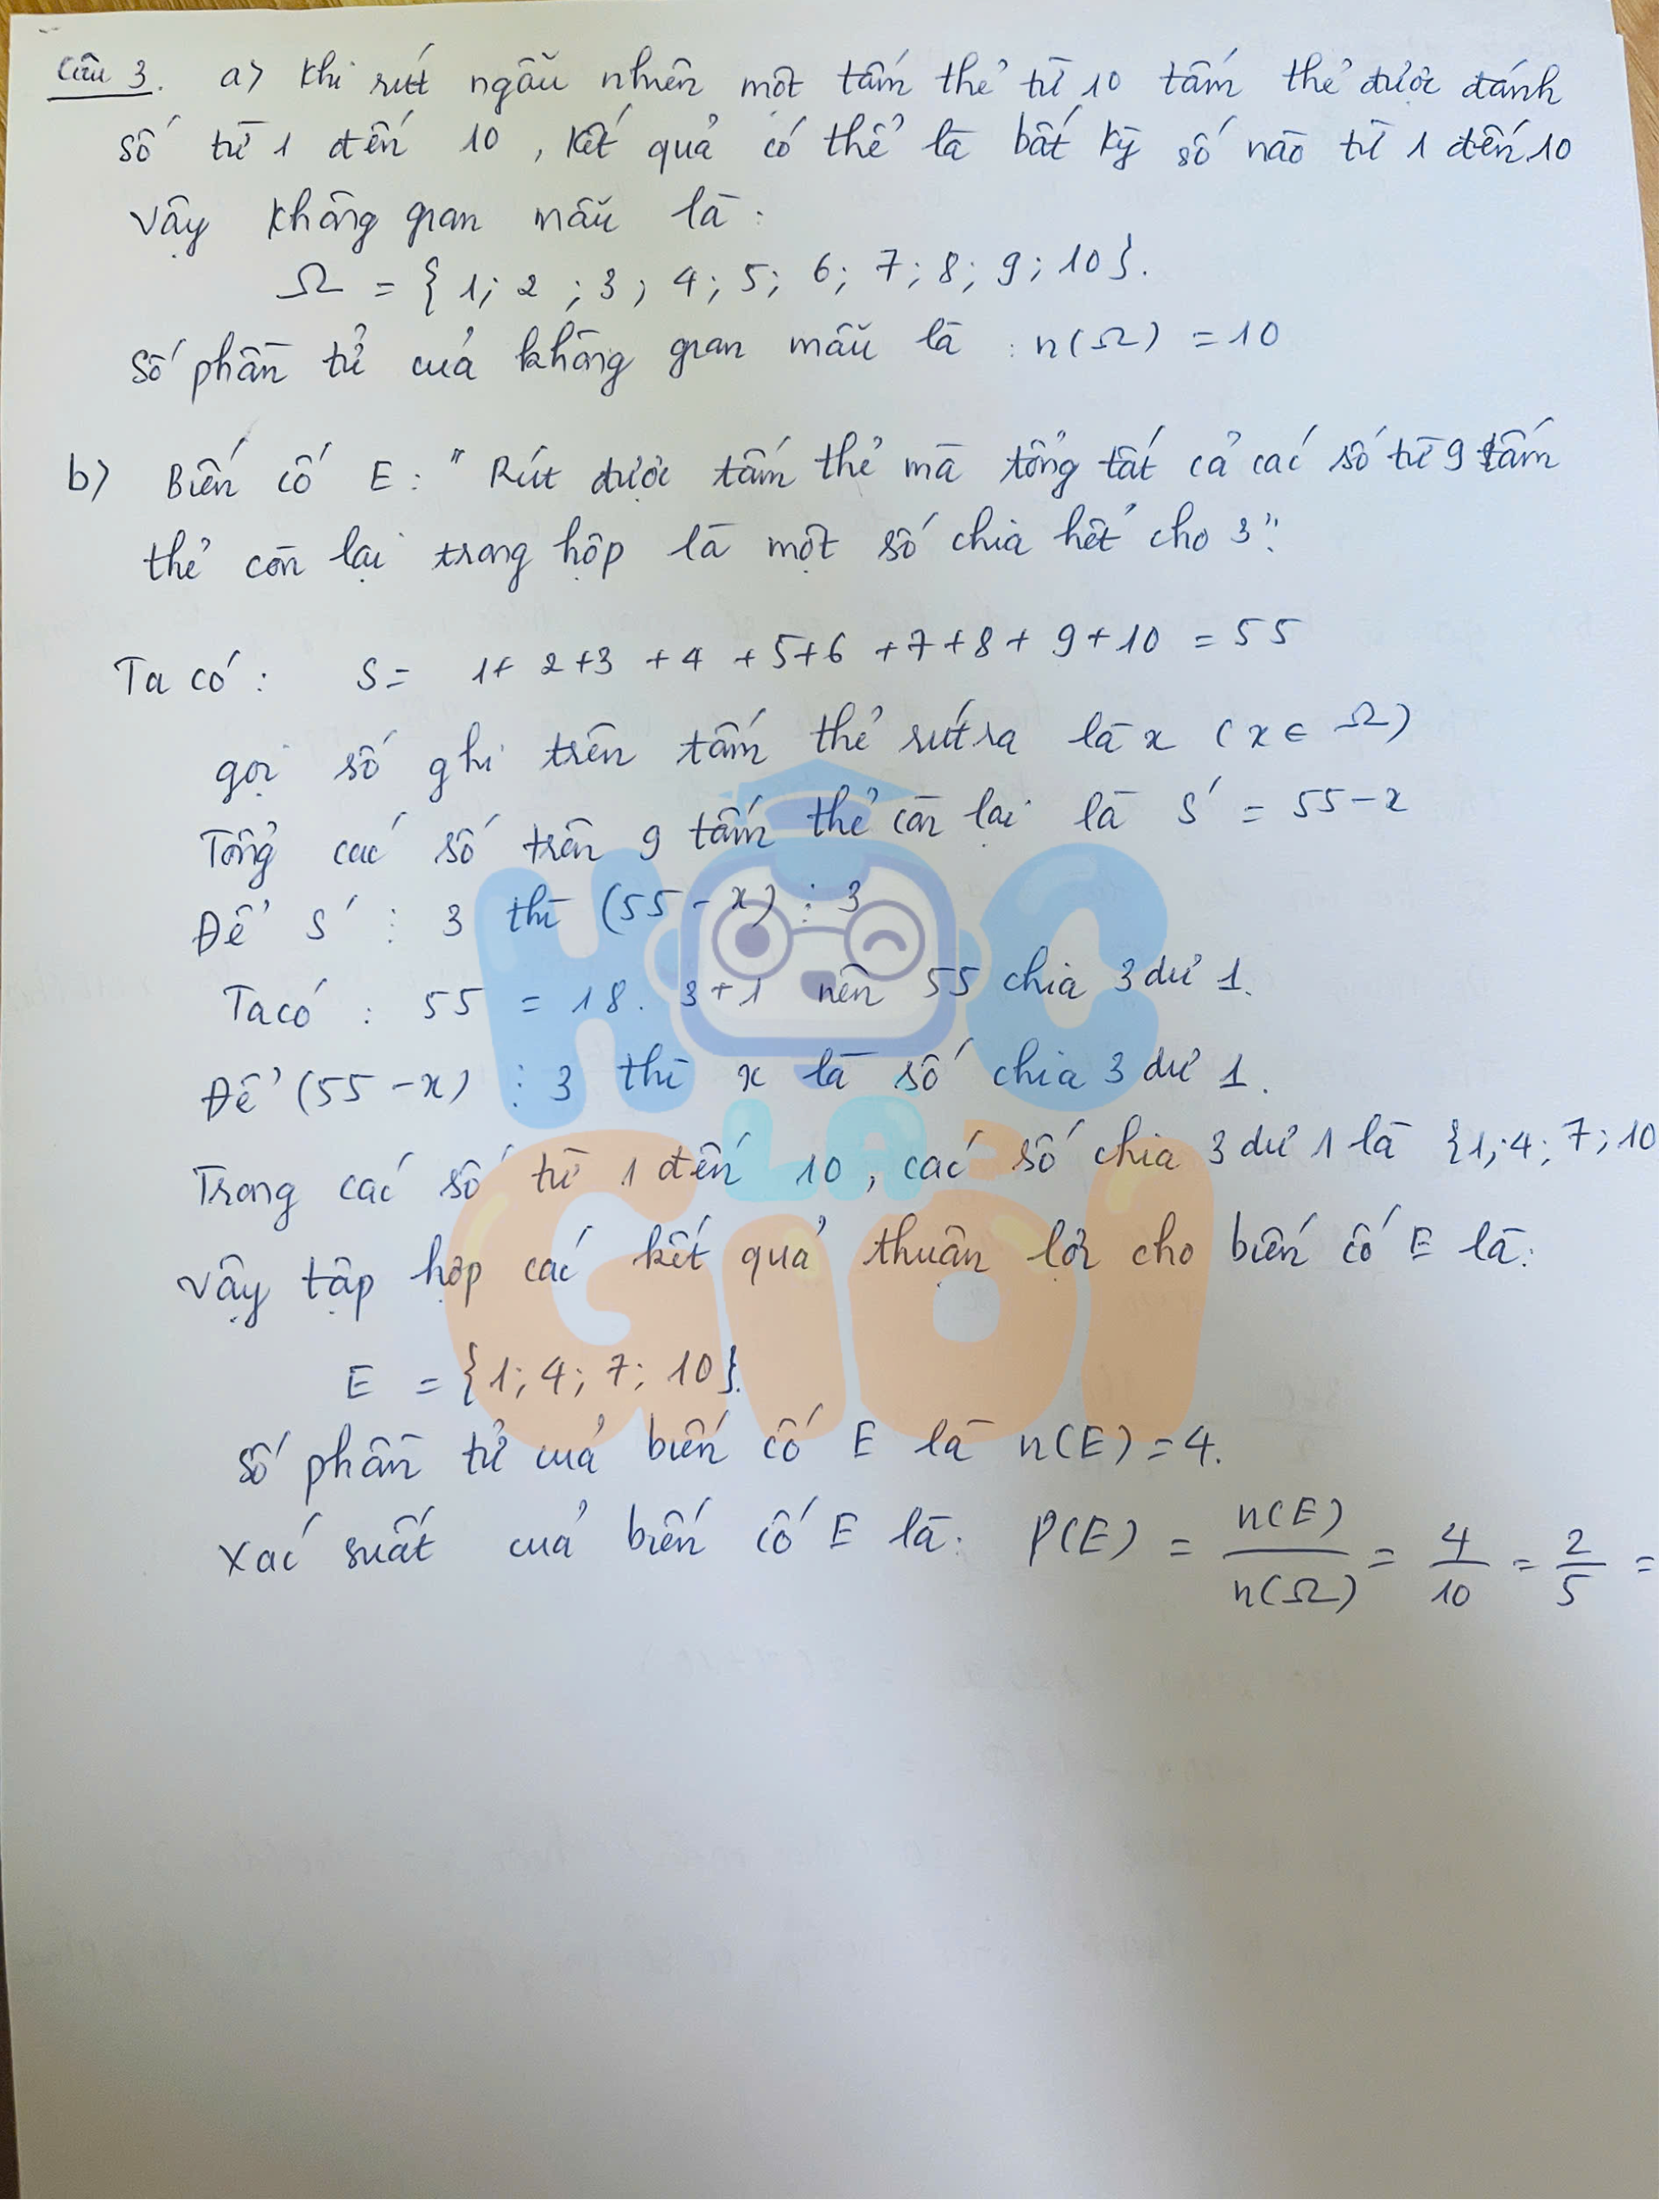 Câu 3. a) Khi rút ngẫu nhiên một tấm thẻ từ 10 tấm thẻ được đánh
số từ 1 đến 10, kết quả có thể là bất kỳ số nào từ 1 đến 10
vậy không gian mẫu là:
Ω = {1; 2; 3; 4; 5; 6; 7; 8; 9; 10}.
Số phần tử của không gian mẫu là: n(Ω) = 10
b) Biến cố E: "Rút được tấm thẻ mà tổng tất cả các số từ 9 tấm
thẻ còn lại trong hộp là một số chia hết cho 3".
Ta có: S = 1+ 2+3 +4 +5+6 +7+8+ 9+10 = 55
gọi số ghi trên tấm thẻ rút ra là x (x ∈ Ω)
Tổng các số trên 9 tấm thẻ còn lại là S' = 55-x
Để S' ⋮ 3 thì (55-x) ⋮ 3
Ta có: 55 = 18. 3+1 nên 55 chia 3 dư 1.
Để (55-x) ⋮ 3 thì x là số chia 3 dư 1.
Trong các số từ 1 đến 10, các số chia 3 dư 1 là {1; 4; 7; 10
Vậy tập hợp các kết quả thuận lợi cho biến cố E là:
E = {1; 4; 7; 10}.
Số phần tử của biến cố E là n(E) = 4.
Xác suất của biến cố E là: P(E) = n(E)/n(Ω) = 4/10 = 2/5 =
HỌC
LÀ
GIỎI